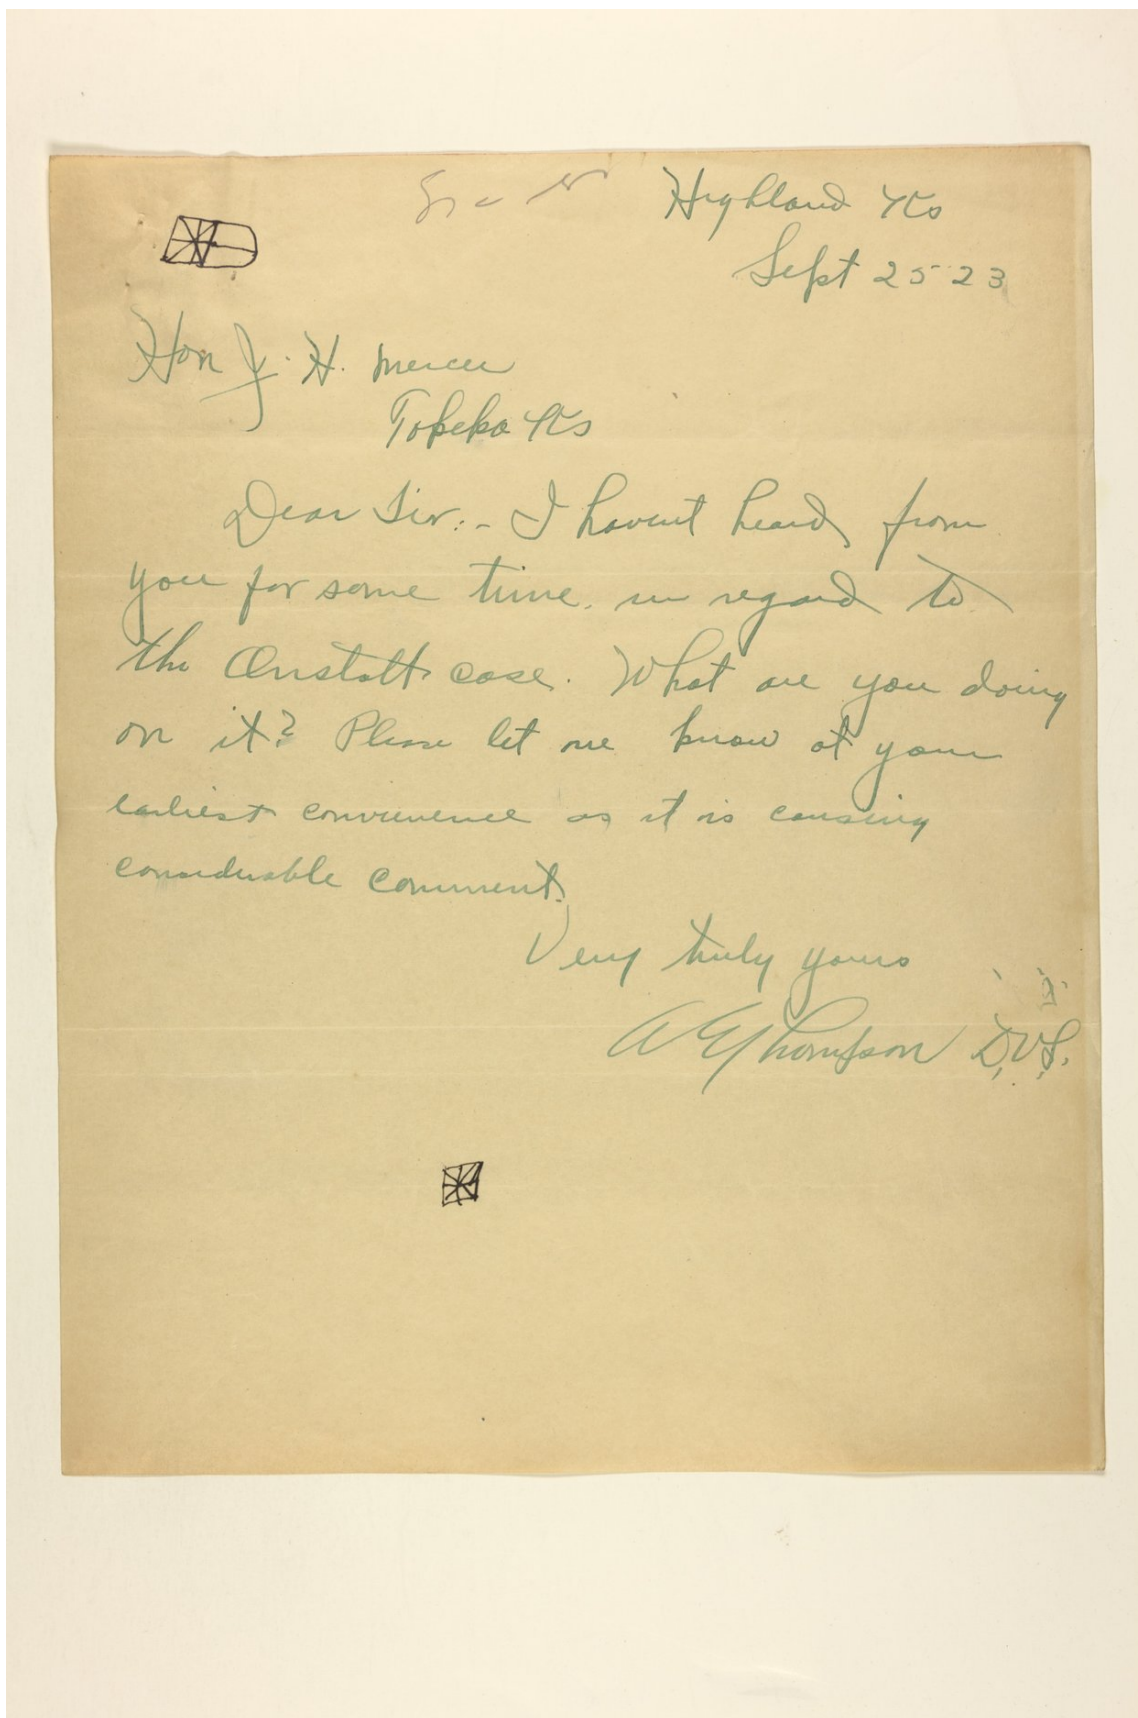 Highland Ks
Sept 25 23
Hon J. H. Mercer
Topeka Ks
Dear Sir:- I havent heard from
you for some time. in regard to
the Anstatt case. What are you doing
on it? Please let me know at your
earliest convenience as it is causing
considerable comment.
Very truly yours
A E Thompson D.V.S.